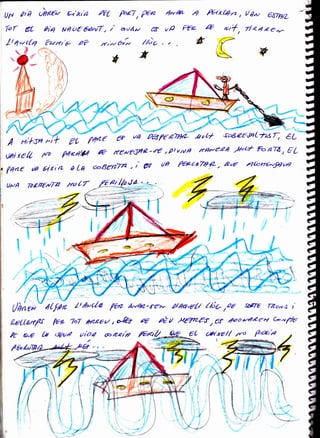 UN DIA VAREN SORTIR DEL PORT, PER ANAR A PESCAR, VAN ESTAR
TOT EL DIA NAVEGANT, I QUAN ES VA FER DE NIT, TIRAREN
L'ANCLA ENMIG DE NINGÚN LLOC...
A MITJANIT EL PARE ES VA DESPERTAR MOLT SOBRESALTAT, EL
VAIXELL NO PARAVA DE MENEJAR-SE, D'UNA MANERA MOLT FORTA, EL
PARE VA SORTIR A LA COBERTA, I ES VA PERCATAR, QUE COMENÇAVA
UNA TORMENTA MOLT PERILLOSA...
VAREN ALÇAR L'ANCLA PER ANAR-SEN D'AQUELL LLOC, DE SOBTE TRONS I
RELLAMPS PER TOT ARREU, ONES DE DEU METRES, ES DONAREN COMPTE
DE QUE LA SEUA VIDA CORRIA PERILL QUE EL VAIXELL NO PODIA
AGUANTAR MOLT MÉS...